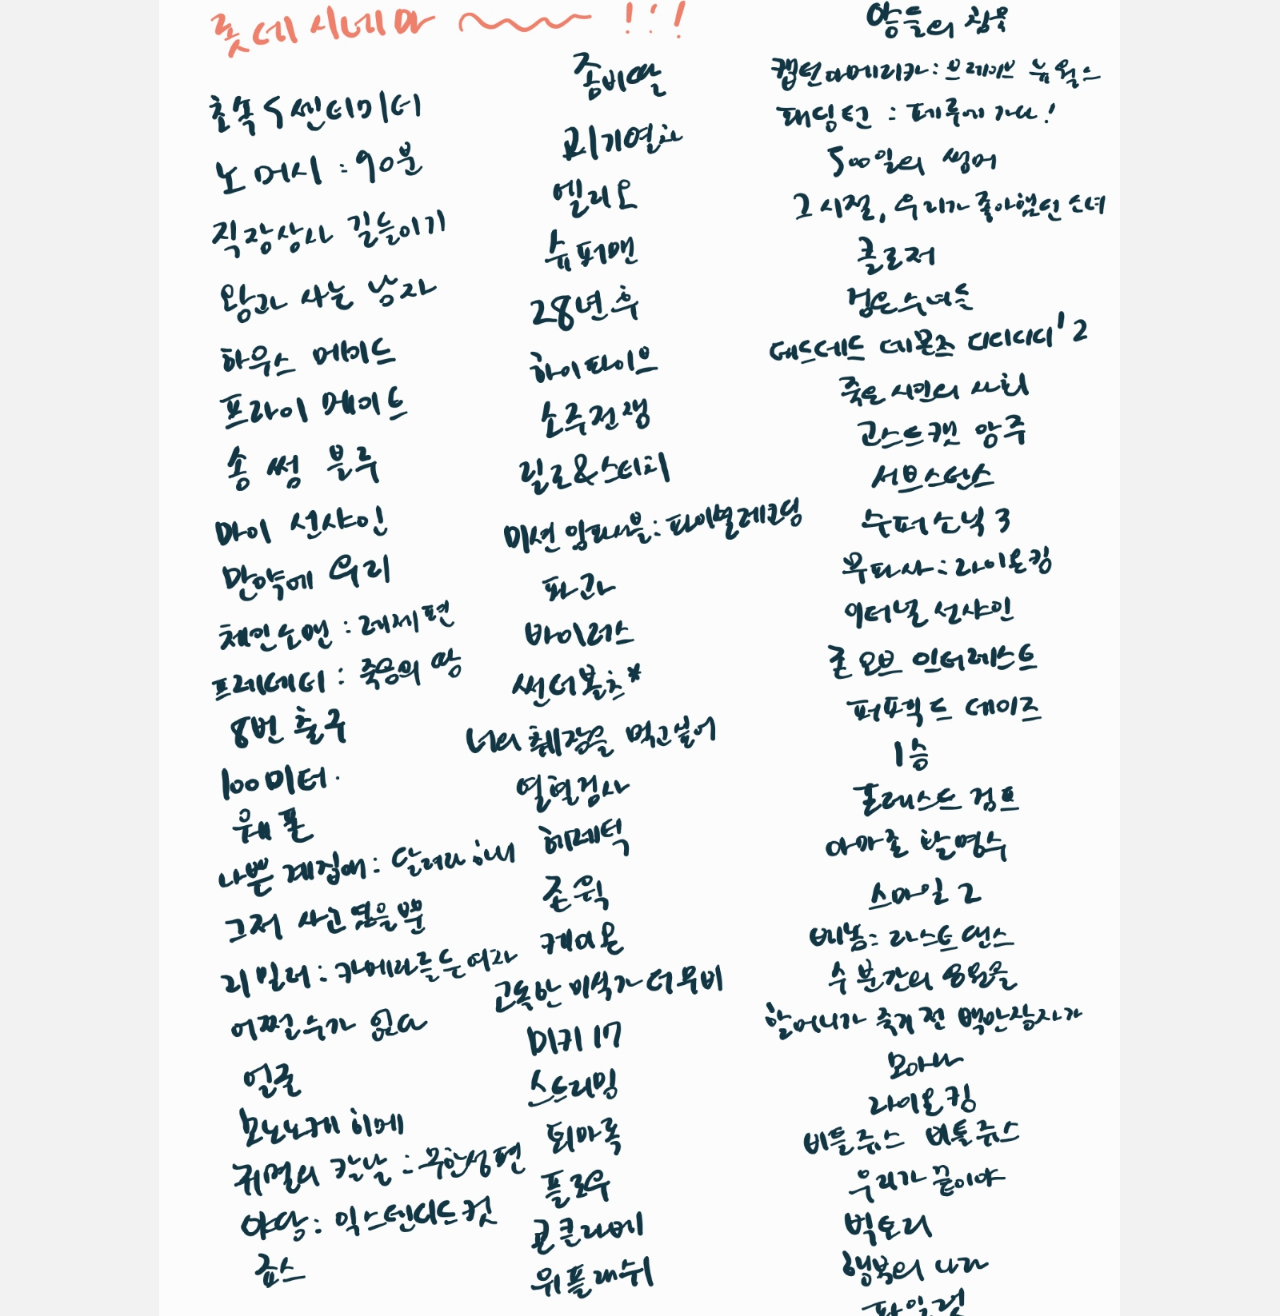 롯데시네마 ~ !!!
초속 5센티미터
노 머시 : 90분
직장상사 길들이기
왕과 사는 남자
하우스 메이드
프라이 메이트
송 썸 블루
마이 선샤인
만약에 우리
체인소맨 : 레제편
프레데터 : 죽음의 땅
8번 출구
100미터.
웨폰
나쁜 계집애 : 달려라 하니
그저 사고였을뿐
리 밀러 : 카메라를 든 여자
어쩔수가 없다
얼굴
모노노케 히메
귀멸의 칼날 : 무한성편
야당 : 익스텐디드 컷
죠스
좀비딸
괴기열차
엘리오
슈퍼맨
28년 후
하이파이브
소주전쟁
릴로&스티치
미션 임파서블 : 파이널레코닝
파과
바이러스
썬더볼츠*
너의 췌장을 먹고싶어
열혈검사
헤레틱
존 윅
케이온
고독한 미식가 더 무비
미키 17
스트리밍
퇴마록
플로우
콘클라베
위플래쉬
양들의 침묵
캡틴아메리카 : 브레이브 뉴 월드
패딩턴 : 페루에 가다!
500일의 썸머
그 시절, 우리가 좋아했던 소녀
클로저
검은수녀들
데드데드 데몬즈 디디디디' 2
죽은 시인의 사회
고스트캣 앙주
서브스턴스
수퍼소닉 3
무파사 : 라이온킹
이터널 선샤인
존 오브 인터레스트
퍼펙트 데이즈
1승
포레스트 검프
아마존 활명수
스마일 2
베놈 : 라스트 댄스
수 분간의 응원을
할머니가 죽기 전 백만장자가
모아나
라이온 킹
비틀쥬스 비틀쥬스
우리가 끝이야
빅토리
행복의 나라
파일럿